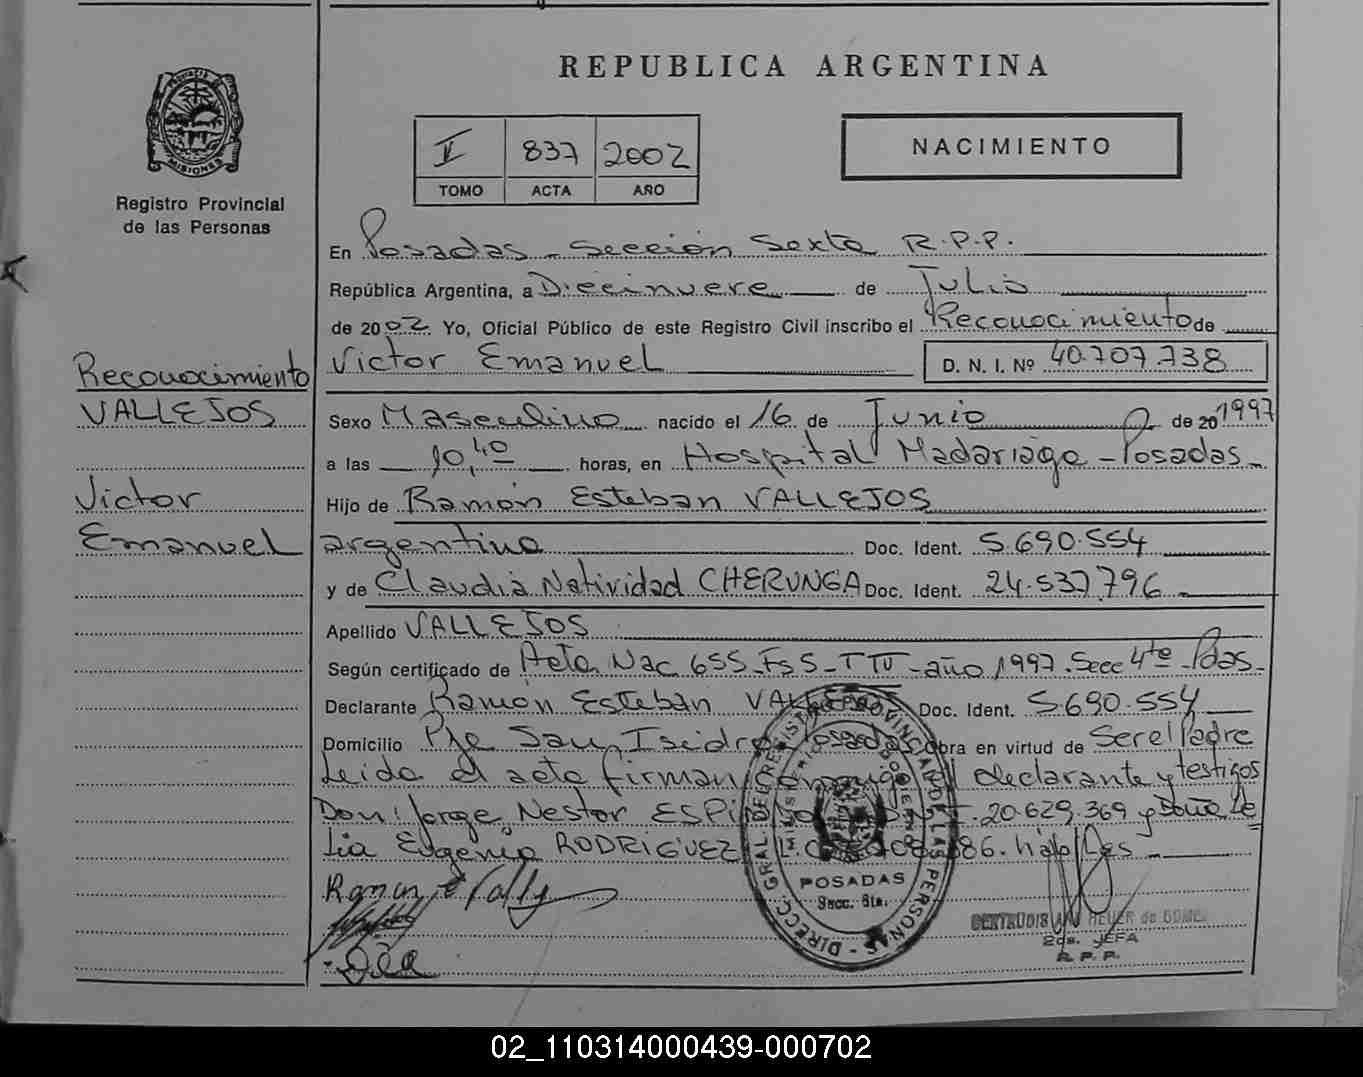 REPUBLICA ARGENTINA
PROVINCIA DE
MISIONES
Registro Provincial
de las Personas
II 837 2002
TOMO ACTA AÑO
NACIMIENTO
En Posadas - Sección Sexta R.P.P.
República Argentina, a Diecinueve de Julio
de 2002 Yo, Oficial Público de este Registro Civil inscribo el Reconocimiento de
Victor Emanuel D. N. I. Nº 40.707.738
Reconocimiento
VALLEJOS
Victor
Emanuel
Sexo Masculino nacido el 16 de Junio de 20 1997
a las 10,40 horas, en Hospital Madariaga - Posadas
Hijo de Ramón Esteban VALLEJOS
argentino Doc. Ident. 5.690.554
y de Claudia Natividad CHERUNGA Doc. Ident. 24.537.796
Apellido VALLEJOS
Según certificado de Acta Nac 655 - Fs 5 - T IV - año 1997 - Secc 4te - Pdas -
Declarante Ramón Esteban VALLEJOS Doc. Ident. 5.690.554
Domicilio Pje San Isidro Posadas Obra en virtud de Ser el Padre
Leida el acta firman conmigo el declarante y testigos
Don: Jorge Nestor 20.629.369 y Doña Le
lia Eugenia RODRIGUEZ L.C. 86. háb/Les
DIRECC. GRAL. DEL REGISTRO PROVINCIAL DE LAS PERSONAS
MINISTERIO DE GOBIERNO
POSADAS
Secc. 6ta.
GERTRUDIS HEUER de GOMEZ
2da. JEFA
R. P. P.
02_110314000439-000702